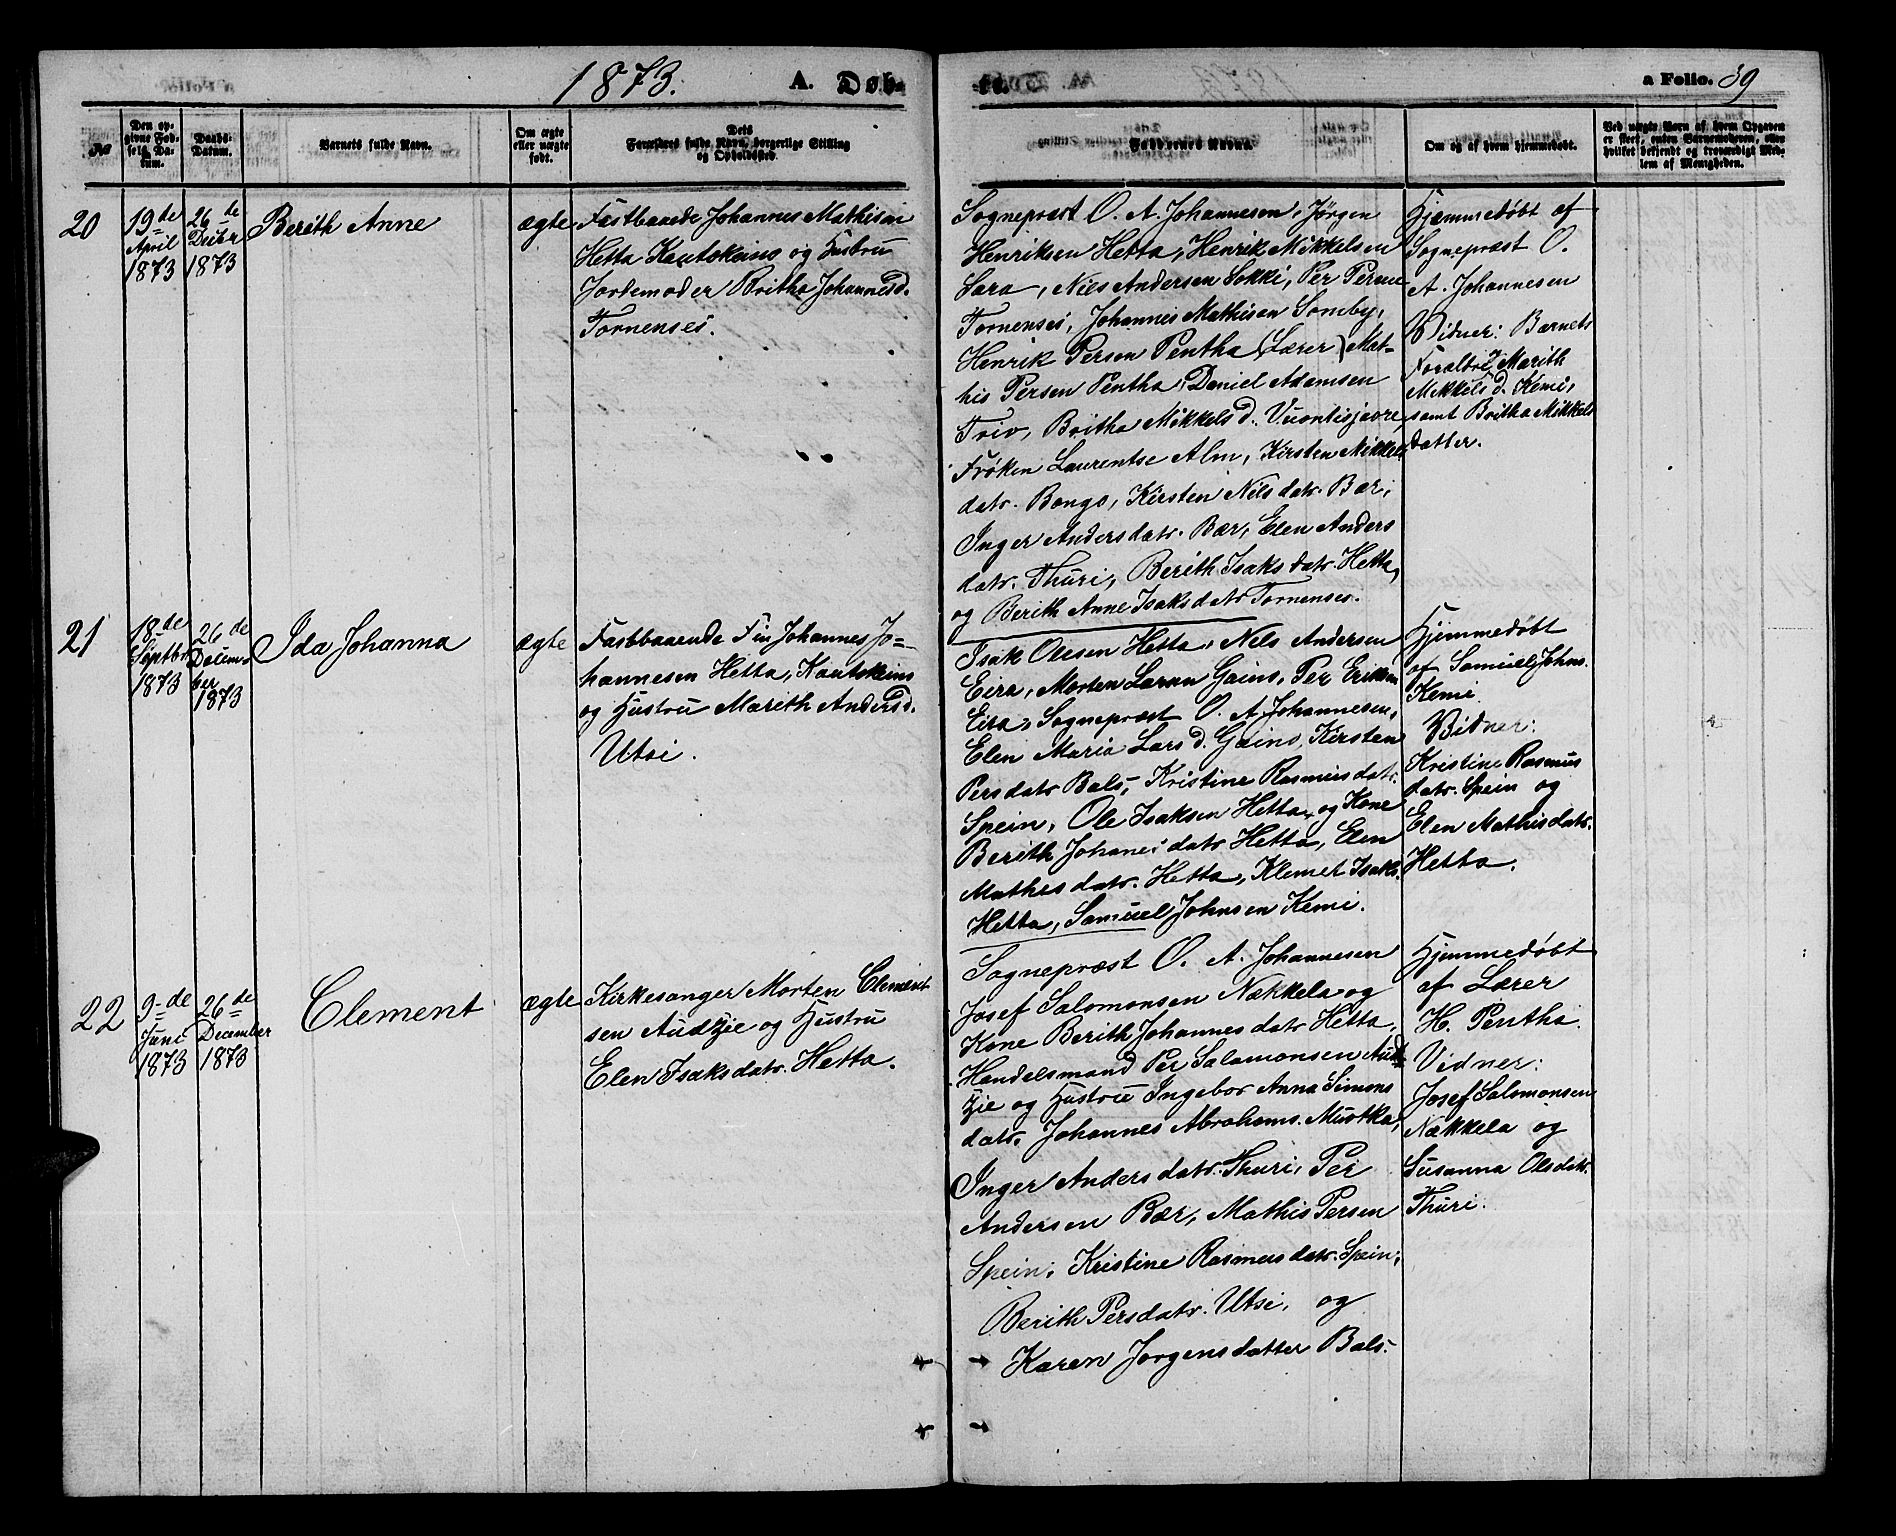 1873. A. Døb-
te. a Folio. 39
No
Den op-
givne Fød-
sels Da-
tum.
Daabs-
Datum.
Barnets fulde Navn.
Om ægte
eller uægte
født.
Dets
Forældres fulde Navn, borgerlige Stilling
og Opholdssted.
Faddernes Navne.
Om og af hvem hjemmedøbt.
Ved uægte Børn af hvem Opgaven
er skeet, enten Barnemoderen, eller
hvilket bekjendt og troværdigt Med-
lem af Menigheden.
20
19de
April
1873
26de
Decbr
1873
Berith Anne
ægte
Fastboende Johannes Mathisen
Hetta Kautokeino og Hustru
Jordemoder Britha Johannesd.
Tornensei.
Sognepræst O. A. Johannesen, Jørgen
Henriksen Hetta, Henrik Mikkelsen
Sara, Niels Andersen Sokki, Per Persen
Tornensei, Johannes Mathisen Somby,
Henrik Persen Pentha (Lærer) Mat-
his Persen Pentha, Daniel Adamsen
Triv, Britha Mikkelsd. Vuontisjavre,
Frøken Laurentse Alm, Kirsten Mikkels
datr. Bongo, Kirsten Nilsdatr. Bær,
Inger Andersdatr. Bær, Elen Anders
datr. Thuri, Berith Isaksdatr. Hetta,
og Berith Anne Isaksdatr Tornenses.
Hjemmedøbt af
Sognepræst O.
A. Johannesen
Vidner: Barnets
Forældre, Marith
Mikkelsd. Kemi,
samt Britha Mikkels
datter.
21
18de
Septbr
1873
26de
Decem-
ber
1873
Ida Johanna
ægte
Fastboende Fin Johannes Jo-
hannesen Hetta, Kautokeino
og Hustru Marith Andersd.
Utsi.
Isak Olesen Hetta, Nels Andersen
Eira, Morten Larsen Gaino, Per Eriksen
Eira, Sognepræst O. A. Johannesen,
Elen Maria Larsd. Gaino, Kirsten
Persdatr Bals, Kristine Rasmusdatr.
Spein, Ole Isaksen Hetta, og Kone
Berith Johanesdatr Hetta, Elen
Mathisdatr. Hetta, Klemet Isaks.
Hetta, Samuel Johnsen Kemi.
Hjemmedøbt
af Samuel Johns.
Kemi
Vidner:
Kristine Rasmus
datr. Spein og
Elen Mathisdatr.
Hetta.
22
9-de
Juni
1873
26de
December
1873
Clement
ægte
Kirkesanger Morten Clement
sen Audzie og Hustru
Elen Isaksdatr. Hetta.
Sognepræst O. A. Johannesen
Josef Salomonsen Nækkela og
Kone Berith Johannesdatr Hetta,
Handelsmand Per Salamonsen Aud-
zie og Hustru Ingebor Anna Simons
datr. Johannes Abrahams. Muotka,
Inger Andersdatr. Thuri, Per
Andersen Bær, Mathis Persen
Spein, Kristine Rasmusdatr. Spein,
Berith Persdatr. Utsi, og
Karen Jørgensdatter Bals.
Hjemmedøbt
af Lærer
H. Pentha.
Vidner:
Josef Salomonsen
Nækkela og
Susanna Olsdatr.
Thuri.